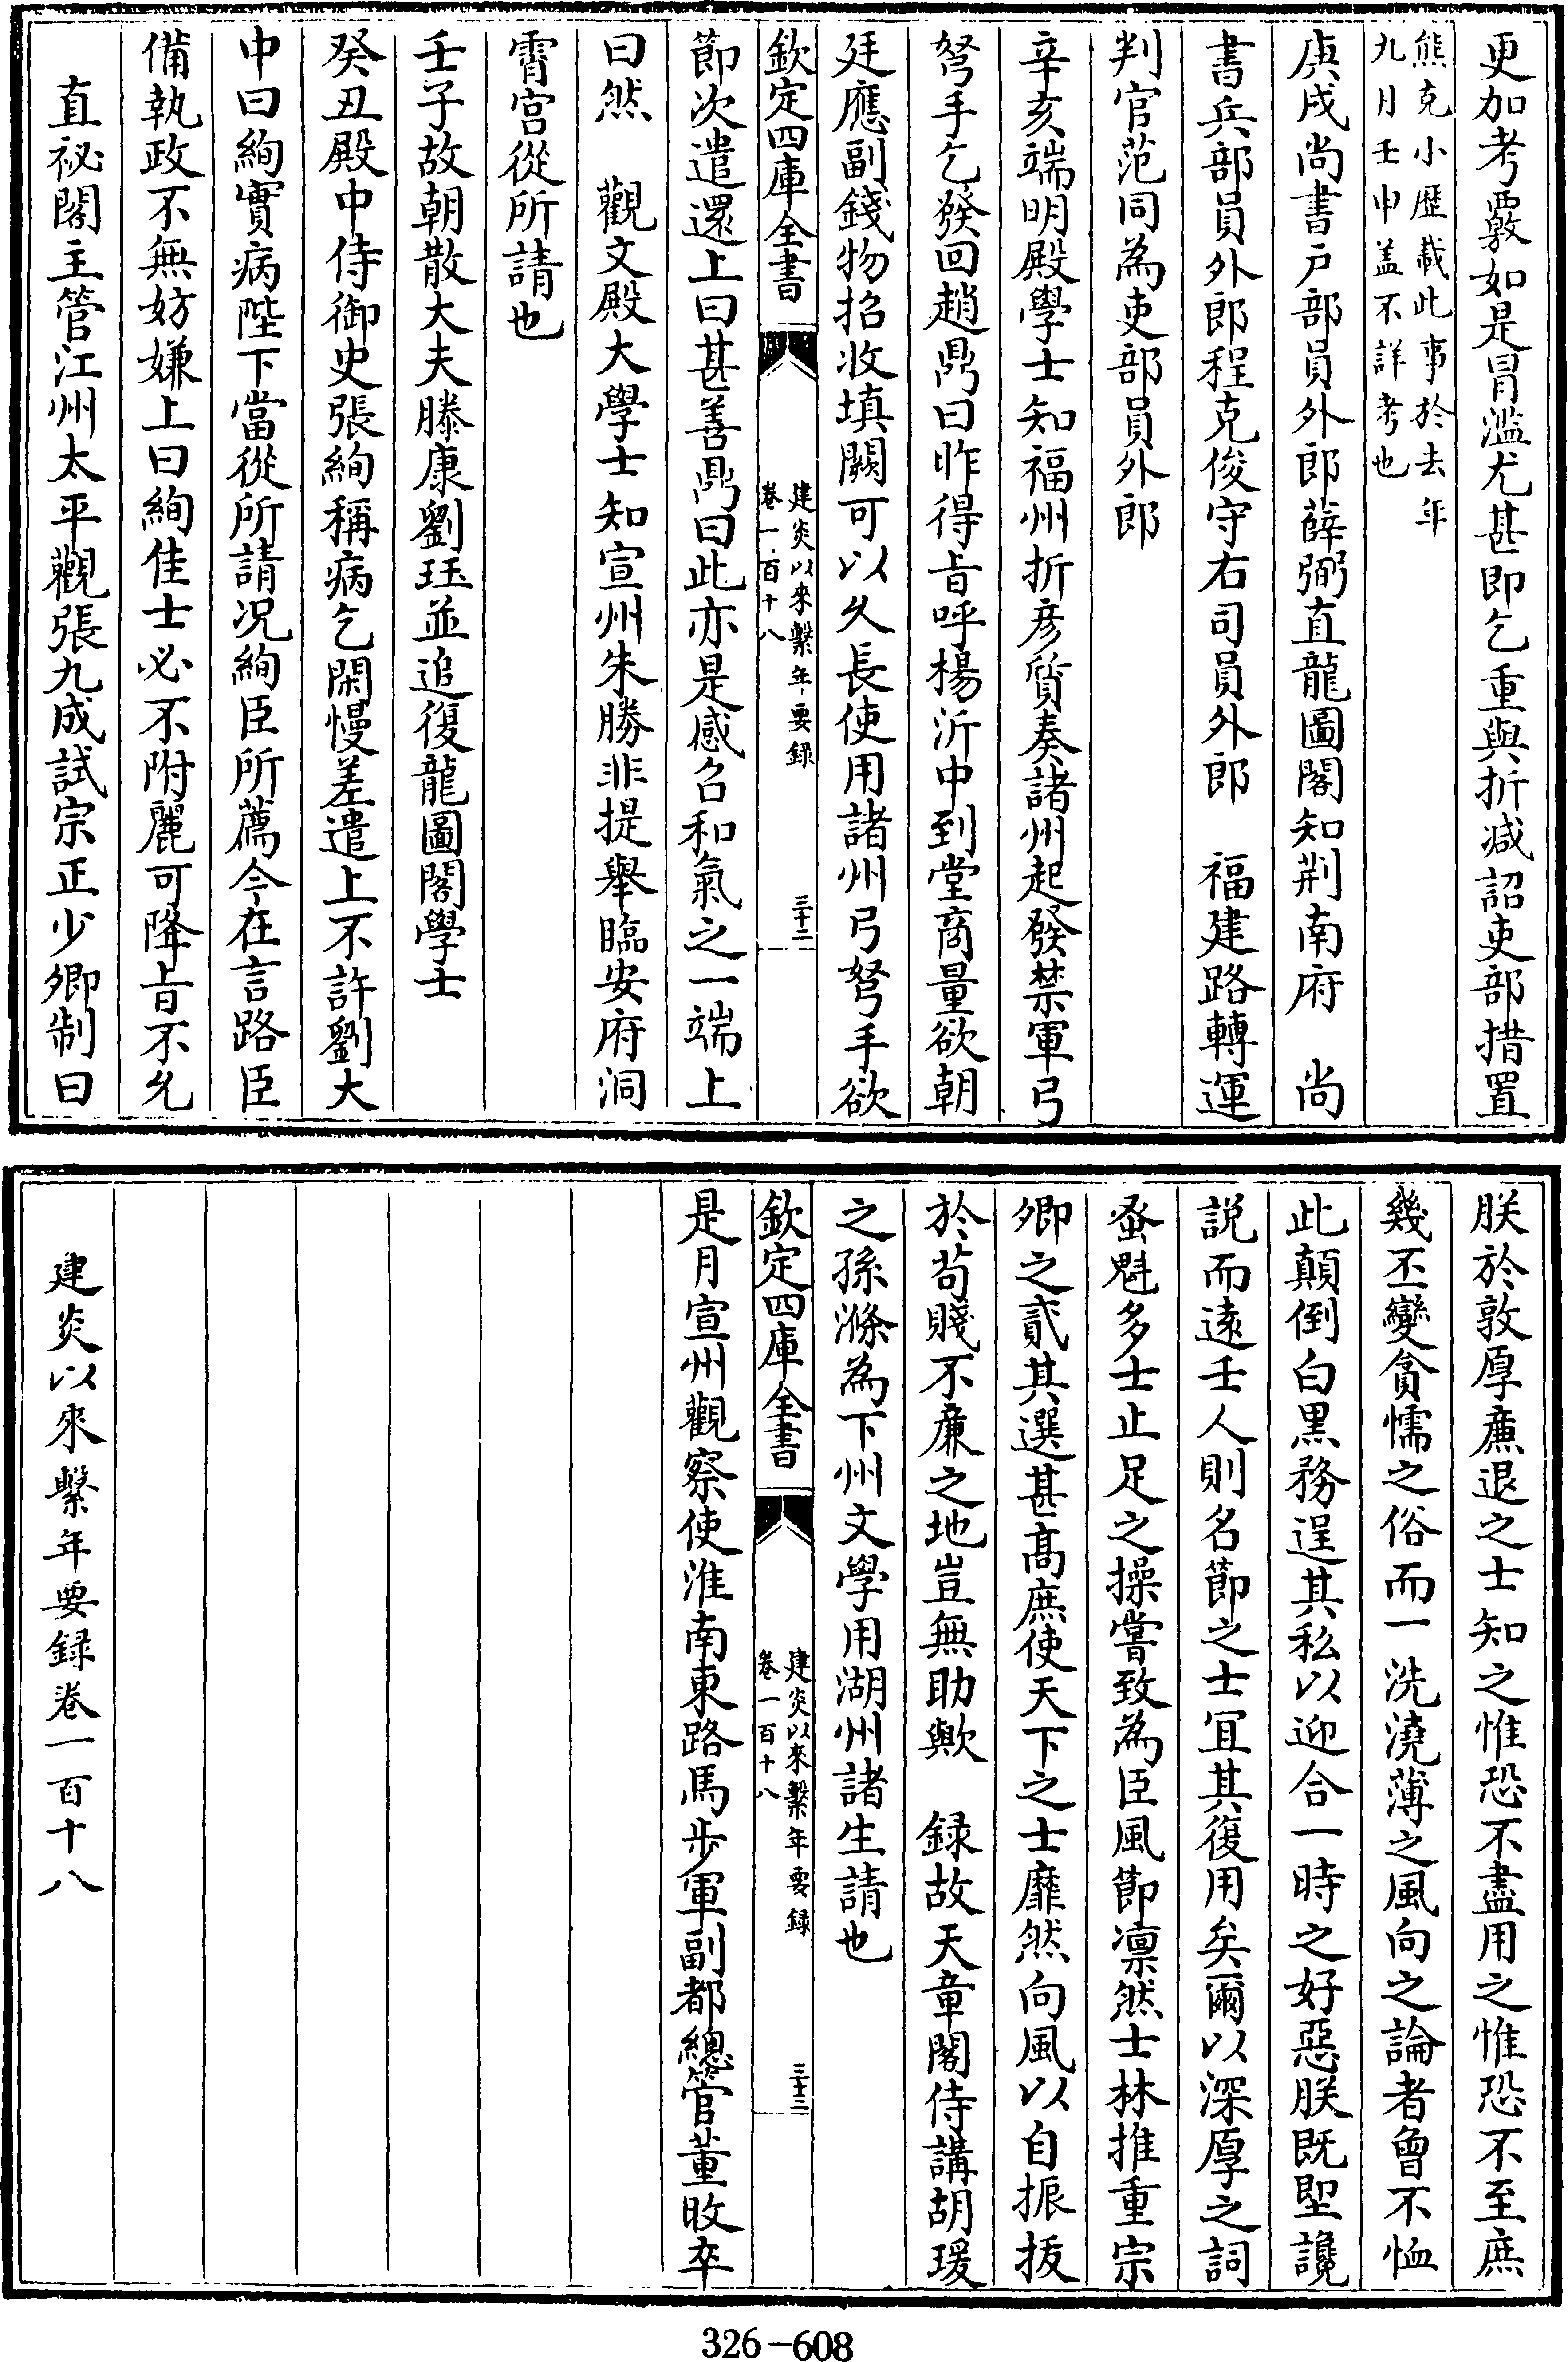 更加考覈如是冐濫尤甚即乞重與折减詔吏部措置
熊克小歴載此事於去年
九月壬申盖不詳考也
庚戌尚書户部員外郎薛弼直龍圖閣知荆南府　尚
書兵部員外郎程克俊守右司員外郎　福建路轉運
判官范同為吏部員外郎
辛亥端明殿學士知福州折彦質奏諸州起發禁軍弓
弩手乞發回趙鼎曰昨得㫖呼楊沂中到堂商量欲朝
廷應副錢物招收填闕可以久長使用諸州弓弩手欲
欽定四庫全書
建炎以來繫年要録
卷一百十八
三十二
節次遣還上曰甚善鼎曰此亦是感召和氣之一端上
曰然　觀文殿大學士知宣州朱勝非提舉臨安府洞
霄宫從所請也
壬子故朝散大夫滕康劉珏並追復龍圖閣學士
癸丑殿中侍御史張絢稱病乞閑慢差遣上不許劉大
中曰絢實病陛下當從所請况絢臣所薦今在言路臣
備執政不無妨嫌上曰絢佳士必不附麗可降㫖不允
直祕閣主管江州太平觀張九成試宗正少卿制曰
朕於敦厚亷退之士知之惟恐不盡用之惟恐不至庶
幾丕變貪懦之俗而一洗澆薄之風向之論者曾不恤
此顛倒白黒務逞其私以迎合一時之好惡朕既聖讒
説而逺壬人則名節之士宜其復用矣爾以深厚之詞
蚤魁多士止足之操嘗致為臣風節凛然士林推重宗
卿之貳其選甚髙庶使天下之士靡然向風以自振拔
於苟賤不亷之地豈無助歟　録故天章閣侍講胡瑗
之孫滌為下州文學用湖州諸生請也
欽定四庫全書
建炎以來繫年要録
卷一百十八
三十三
是月宣州觀察使淮南東路馬步軍副都總管董旼卒
建炎以來繫年要録卷一百十八
326-608